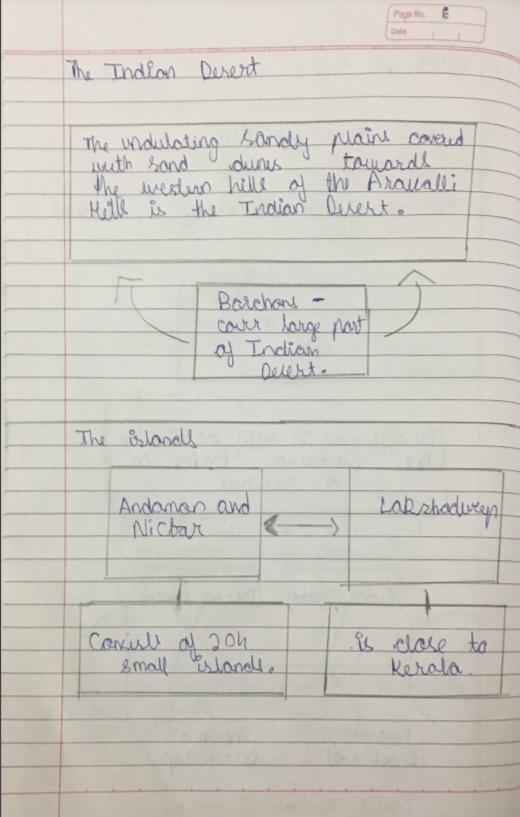 Page No. 6
Date
The Indian Desert
The undulating sandy plains covered
with sand dunes towards
the western hills of the Aravalli
Hills is the Indian Desert.
Barchans -
covr large part
of Indian
Desert.
The islands
Andaman and
Nicbar
Lakshadweep
Consists of 204
small islands.
is close to
Kerala.